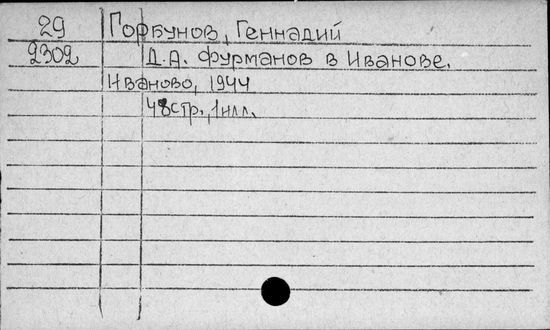 29 Горбунов, Геннадий
2302 Д.А. Фурманов в Иванове.
Иваново, 1944
48стр., 1илл.